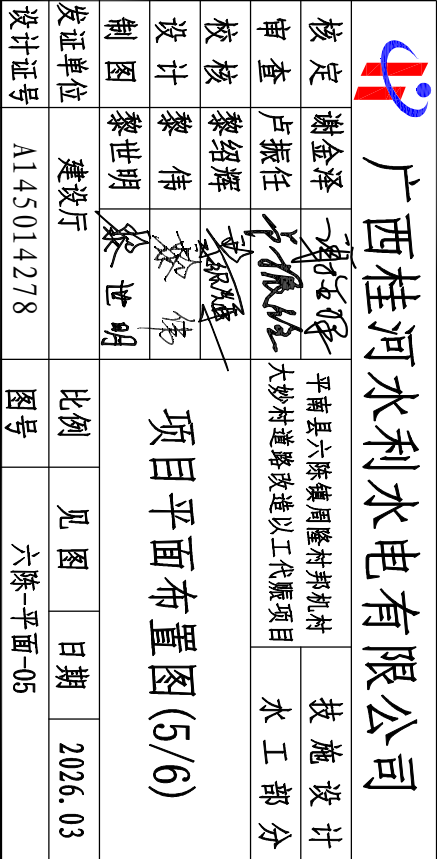 广西桂河水利水电有限公司
核定 谢金泽
审查 卢振任
校核 黎绍辉
设计 黎伟
制图 黎世明 黎世明
发证单位 建设厅
设计证号 A145014278
平南县六陈镇周隆村邦机村
大妙村道路改造以工代赈项目
技施设计
水工部分
项目平面布置图(5/6)
比例 见图 日期 2026.03
图号 六陈-平面-05